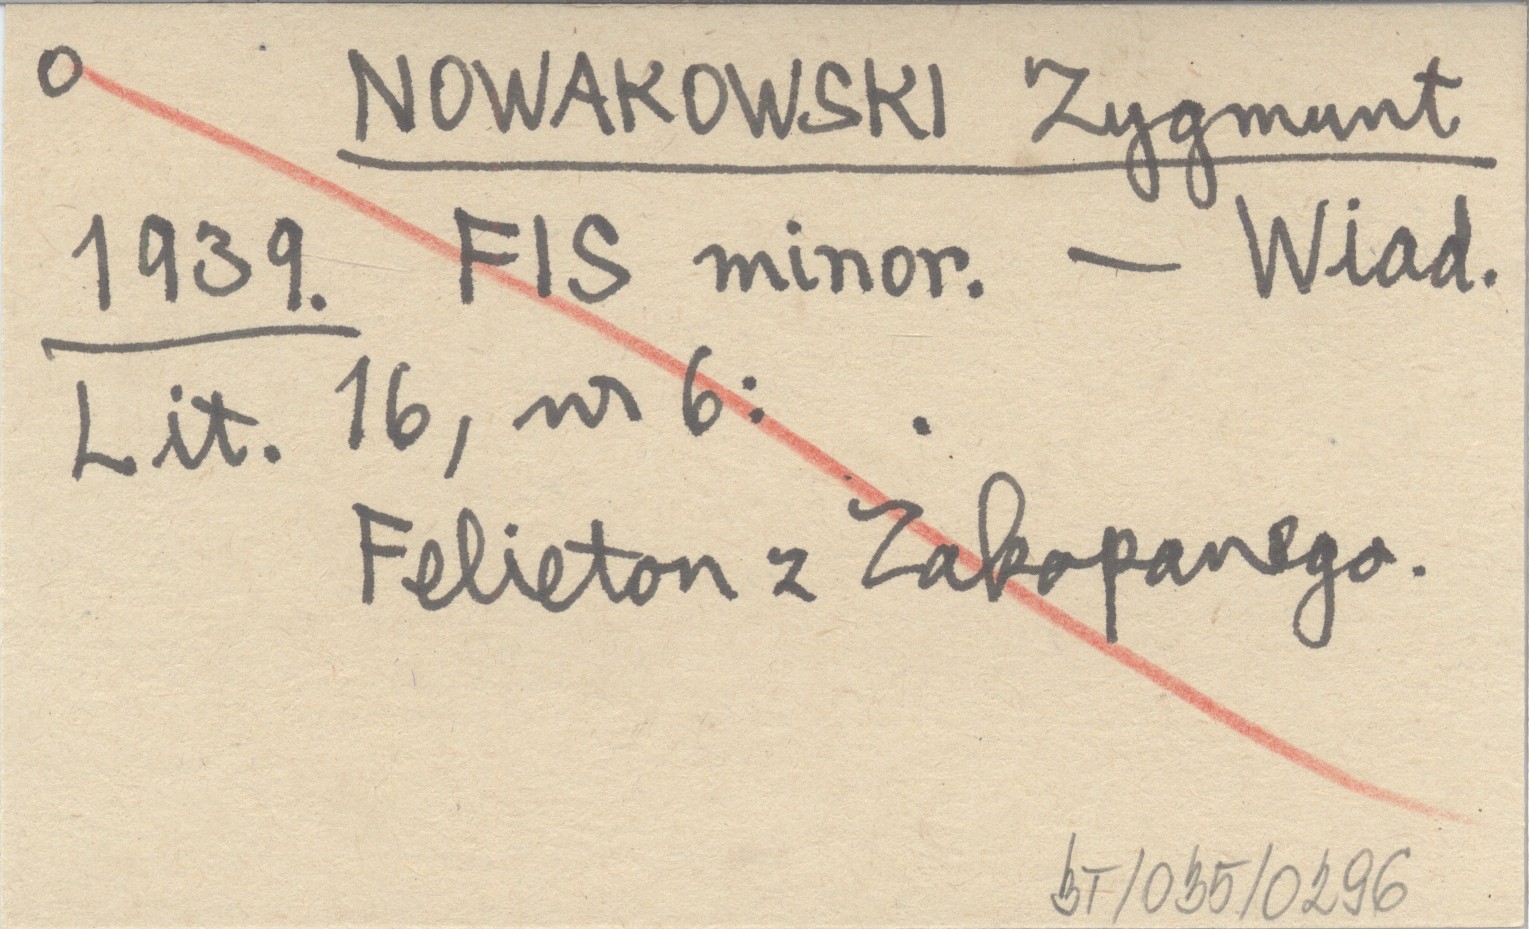 o NOWAKOWSKI Zygmunt
1939. FIS minor. — Wiad.
Lit. 16, nr 6: .
Felieton z Zakopanego.
BT/035/0296